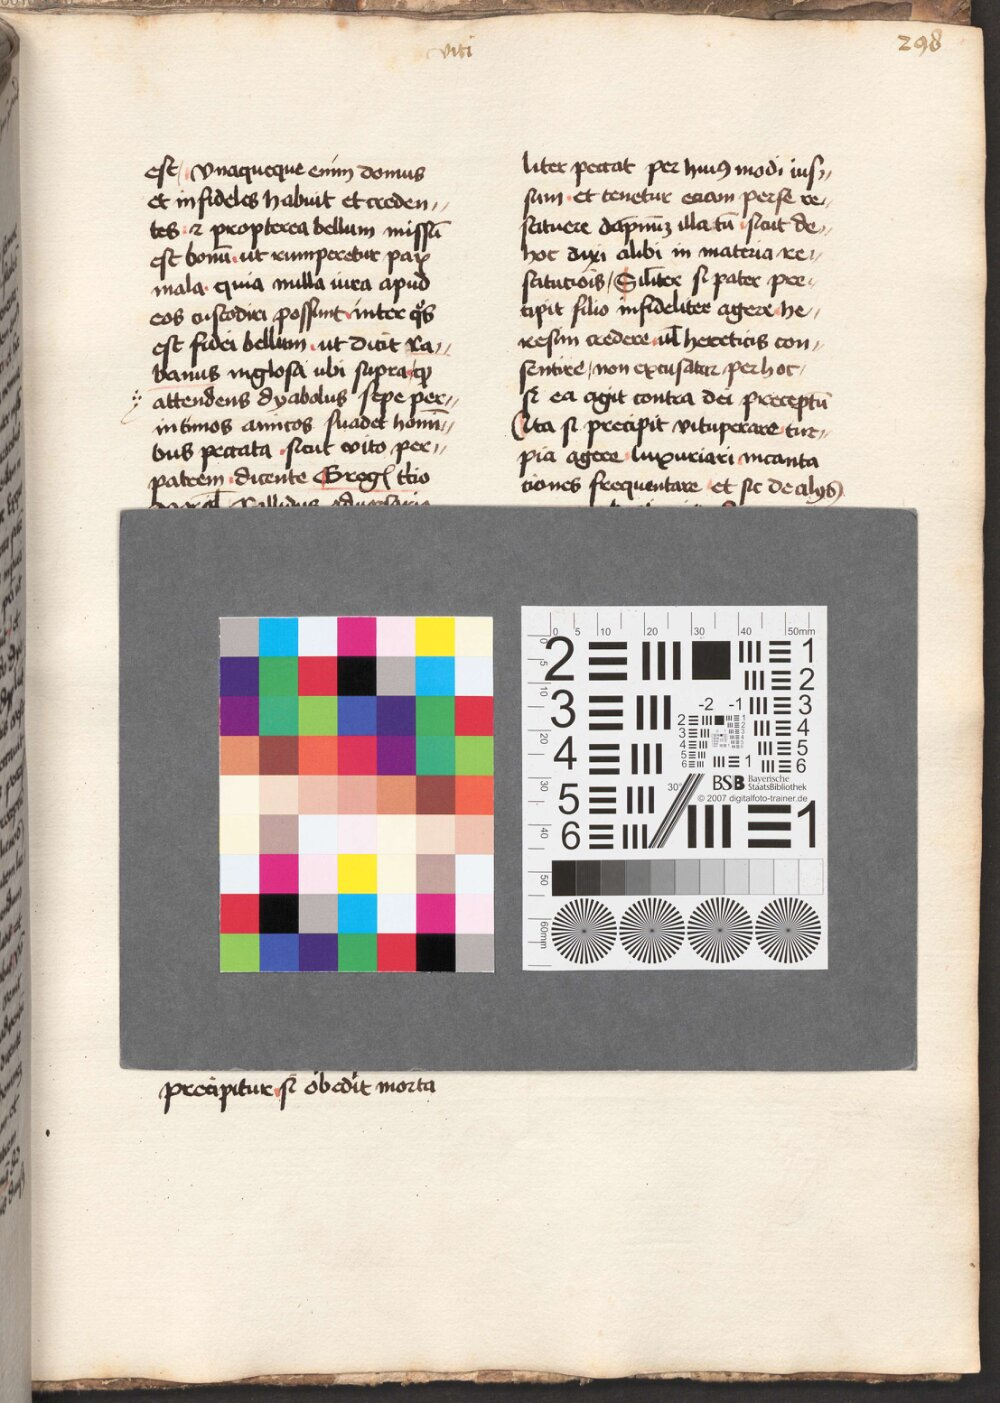 viti
298
est Vnaqueque enim domus
et infideles habuit et creden
tes 2 propterea bellum missū
est bonū ut rumperetur pax
mala quia nulla iura apud
eos custodiri possunt inter qͦs
est fidei bellum ut dicit Ra
banus in glosa ubi supra
attendens dyabolus sepe per
intimos amicos suadet homī
bus peccata sicut cito per
patrem dicente Greg ttio
liter peccat per huiꝯ modi ius
sum et tenetur eciam per se re
scituere dāpnum illatū sicut de
hoc dixi alibi in materia re
stitutiōis Silīter si pater pre
cipit filio infideliter agere he
resim credere ul hereticis con
sentire non excusatur per hoc
si ea agit contra dei preceptū
Ita si precipit vituperare tur
pia agere luxuriari incanta
ciones frequentare et sic de alijs
precipitur si obedit morta
0 5 10 20 30 40 50mm
0 5 10 20 30 40 50 60mm
2 1
2
3 3
4 4
5 5
6 6
-2 -1
1
30°
BSB Bayerische StaatsBibliothek
© 2007 digitalfoto-trainer.de
1